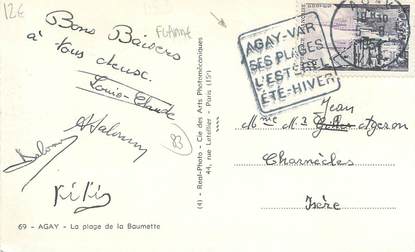 12€
Bons Baisers
à tous deux.
Louis-Claude
Kiki
83
69 - AGAY - La plage de la Baumette
(4) - Real-Photo - Cie des Arts Photomécaniques
44, rue Letellier - Paris (15e)
AGAY-VAR
SES PLAGES
L'ESTEREL
ÉTÉ-HIVER
Jean
Mme M. Ageron
Charnècles
Isère